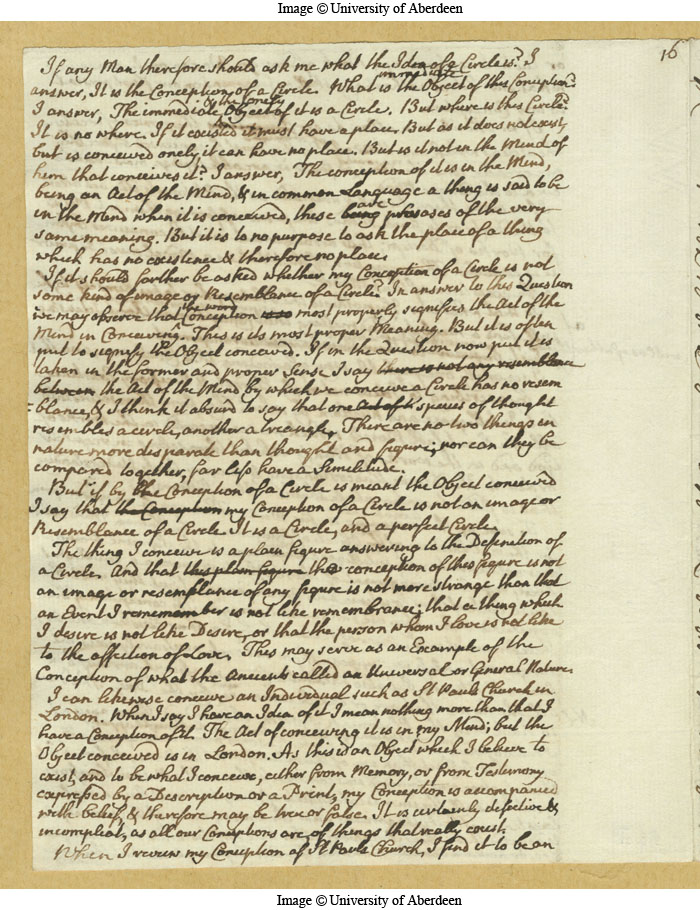 Image © University of Aberdeen
16
If any Man therefore should ask me what the Idea of a Circle is? I
immediate
answer, It is the Conception of a Circle. What is the Object of this Conception?
& the onely
I answer, The immediate Object of it is a Circle. But where is this Circle?
It is no where. If it existed it must have a place. But as it does not exist,
but is conceived onely, it can have no place. But is it not in the Mind of
him that conceives it? I answer, The conception of it is in the Mind,
being an Act of the Mind, & in common Language a thing is said to be
are
in the Mind when it is conceived, these being phrases of the very
same meaning. But it is to no purpose to ask the place of a thing
which has no existence & therefore no place.
If it should farther be asked whether my Conception of a Circle is not
some kind of image or Resemblance of a Circle? In answer to this Question
the word
we may observe that Conception most properly signifies the Act of the
Mind in Conceiving. This is its most proper Meaning. But it is often
put to signify the Object conceived. If in the Question now put it is
taken in the former and proper Sense I say there is not any resemblance
between the Act of the Mind by which we conceive a Circle has no resem
=blance, & I think it absurd to say that one Act of species of thought
resembles a circle, another a treangle, There are no two things in
nature more disparate than thought and figure; nor can they be
compared together, far less have a Similitude.
But if by the Conception of a Circle is meant the Object conceived
I say that the Conception my Conception of a Circle is not an image or
Resemblance of a Circle It is a Circle, and a perfect Circle.
The thing I conceive is a plain figure answering to the Definition of
a Circle. And that this plain figure the conception of this figure is not
an image or resemplance of any figure is not more strange than that
an Event I remember is not like remembrance; that a thing which
I desire is not like Desire, or that the person whom I love is not like
to the affection of Love. This may serve as an Example of the
Conception of what the Ancients called an Universal or General Nature.
I can likewise conceive an Individual such as St Pauls Church in
London. When I say I have an Idea of it I mean nothing more than that I
have a Conception of it. The Act of conceiving it is in my Mind; but the
Object conceived is in London. As this is an Object which I believe to
exist, and to be what I conceive, either from Memory, or from Testimony
expressed by a Description or a Print, my Conception is accompanied
with belief, & therefore may be true or false. It is certainly defective &
incompleat, as all our Conceptions are, of things that really exist.
When I review my Conception of St Pauls Church, I find it to be an
Image © University of Aberdeen